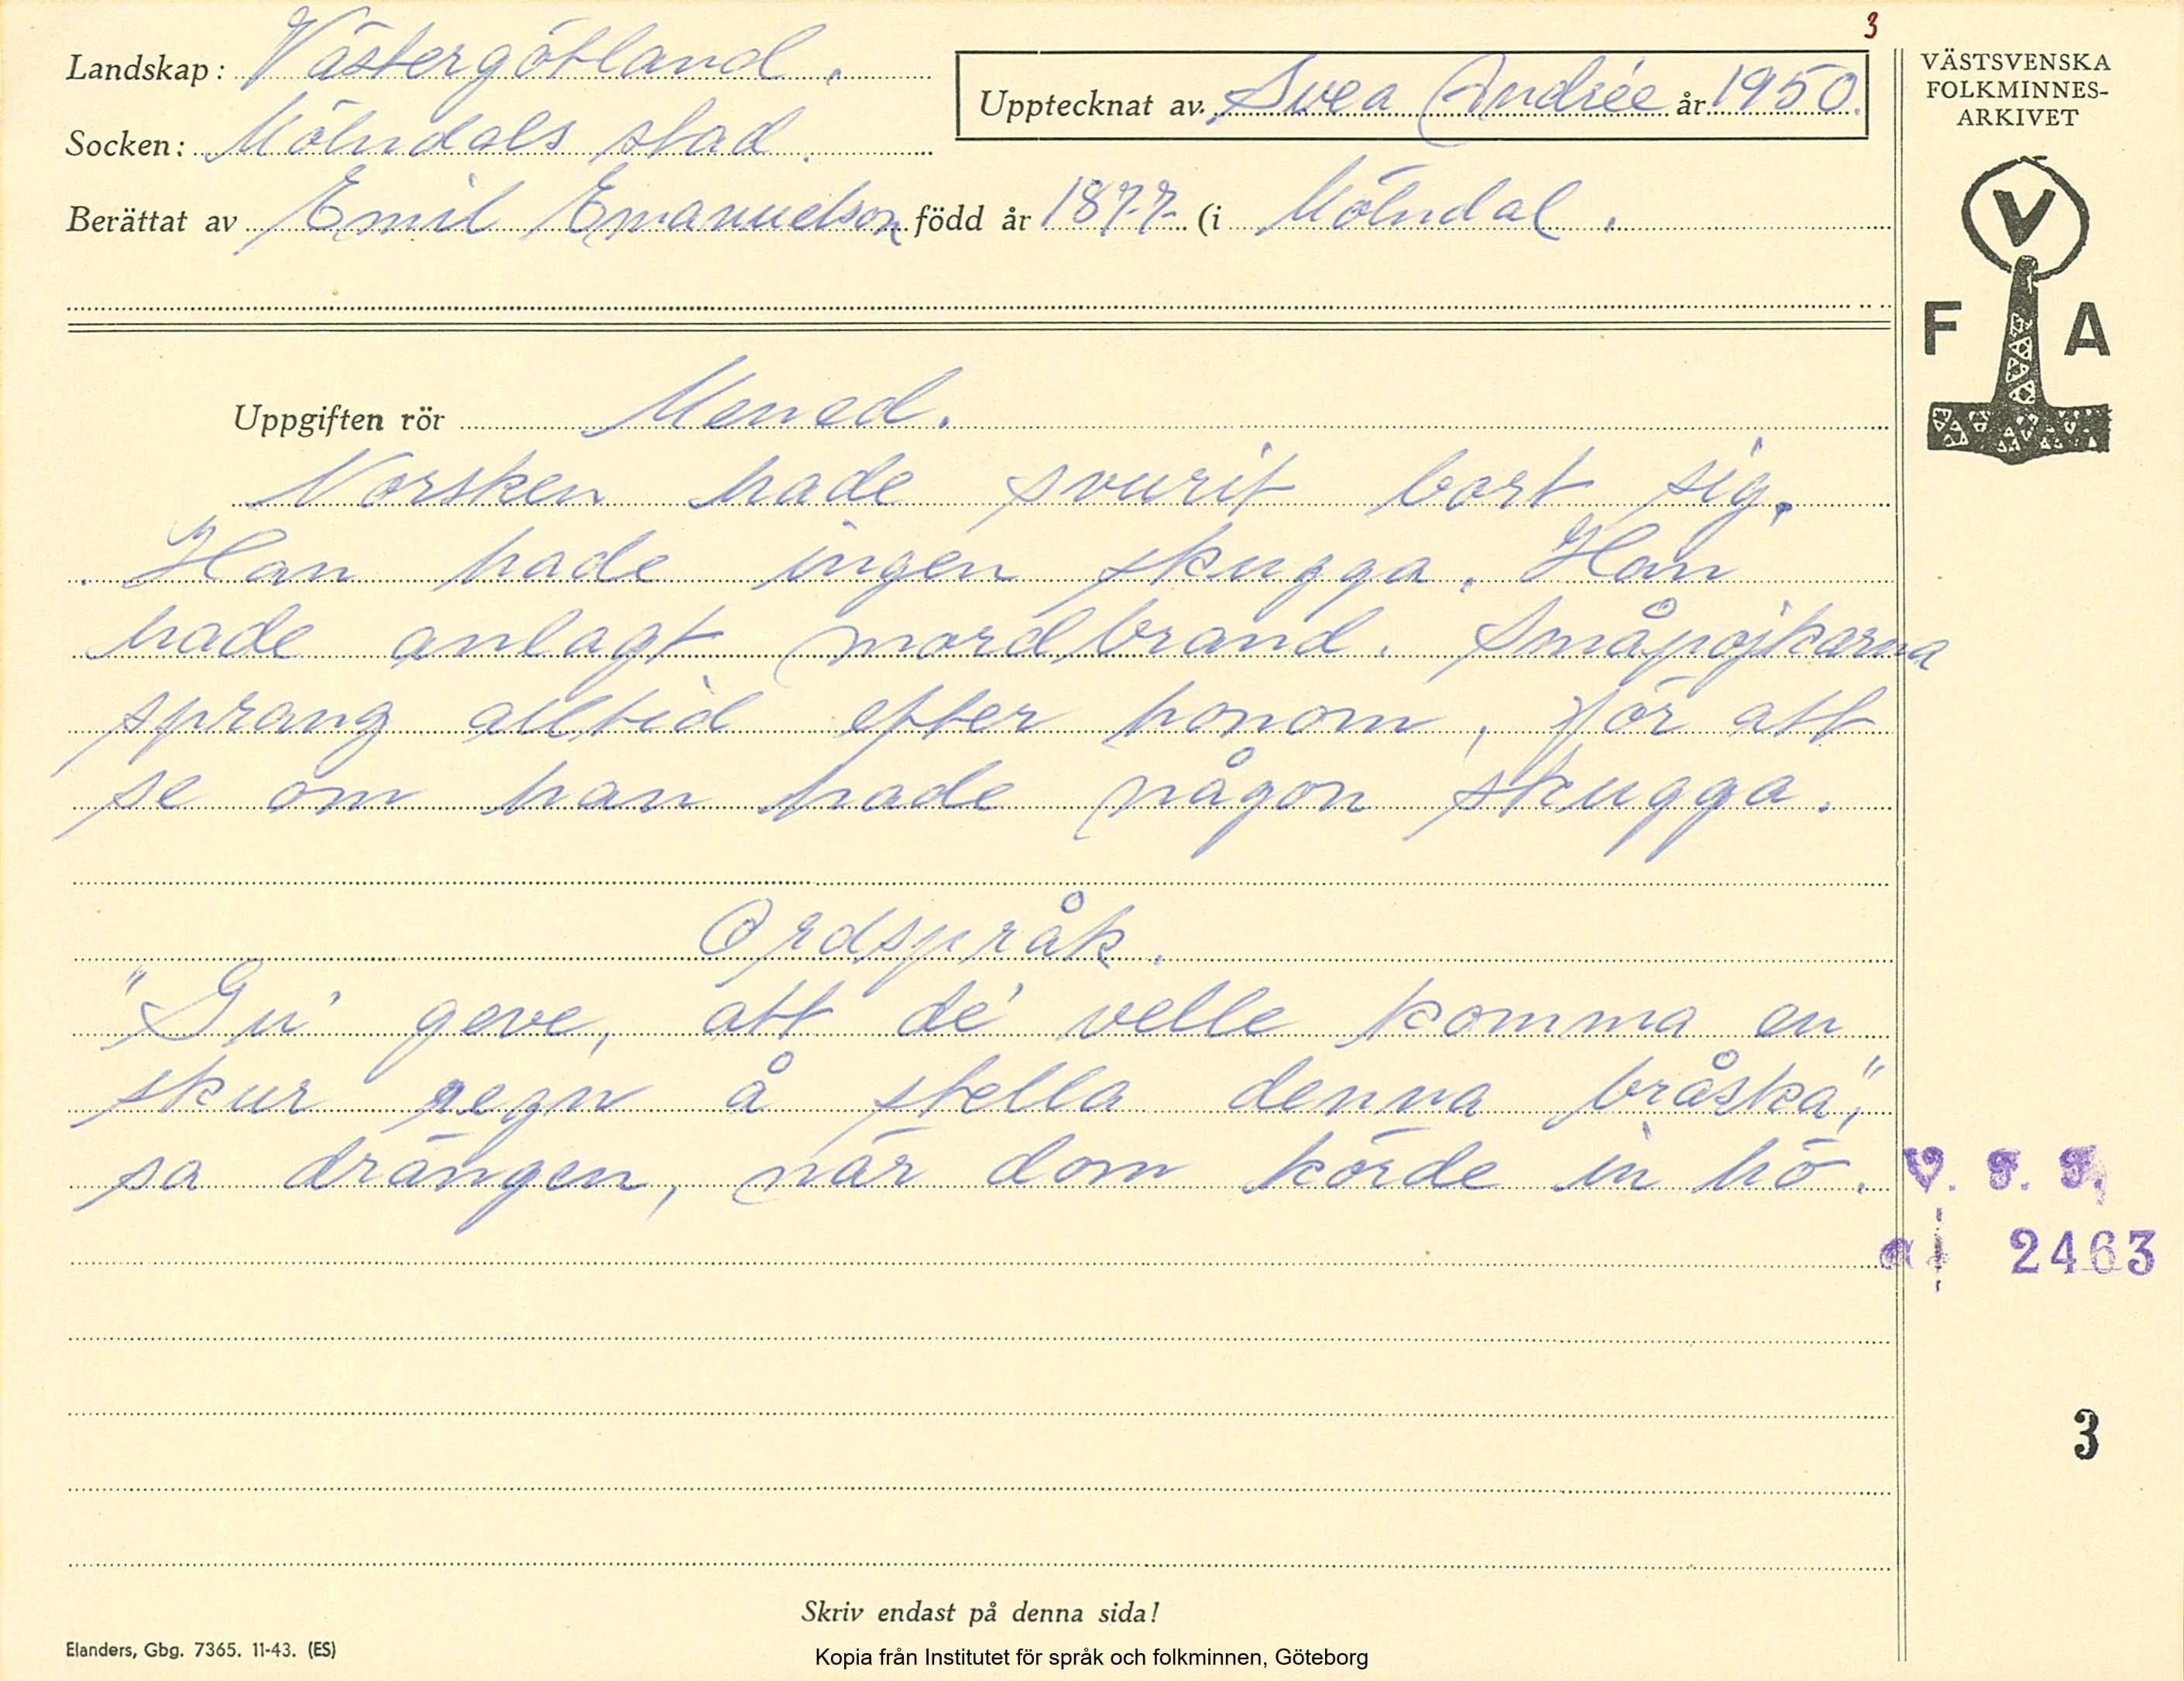 3
Landskap: Västergötland.
Upptecknat av Svea Andrée år 1950.
Socken: Mölndals stad.
Berättat av Emil Emanuelson född år 1877 (i Mölndal.
VÄSTSVENSKA
FOLKMINNES-
ARKIVET
V
F A
Uppgiften rör Mened.
Norsken hade svurit bort sig.
Han hade ingen skugga. Han
hade anlagt mordbrand. Småpojkarna
sprang alltid efter honom, för att
se om han hade någon skugga.
Ordspråk.
"Gu' geve, att de' velle komma en
skur regn å stella denna bråska",
sa drängen, när dom körde in hö.
V. F. F.
2463
3
Skriv endast på denna sida!
Elanders, Gbg. 7365. 11-43. (ES)
Kopia från Institutet för språk och folkminnen, Göteborg